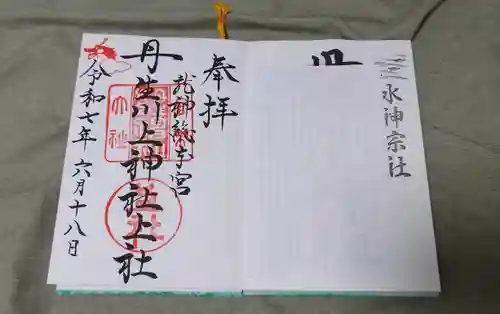 水神宗社
奉拝
龍神総本宮
丹生川上神社上社
令和七年 六月十八日